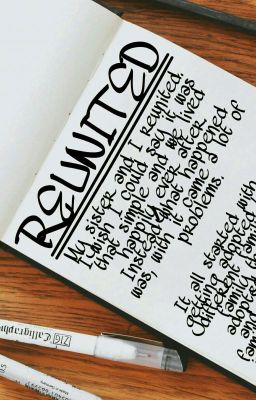 REUNITED
My sister and I reunited.
I wish I could say it was
that simple and we lived
happily ever after.
Instead what happened
was, with it came a lot of
problems.
It all started with
getting adopted
different
family
and
adopted
ZIG Calligraphy